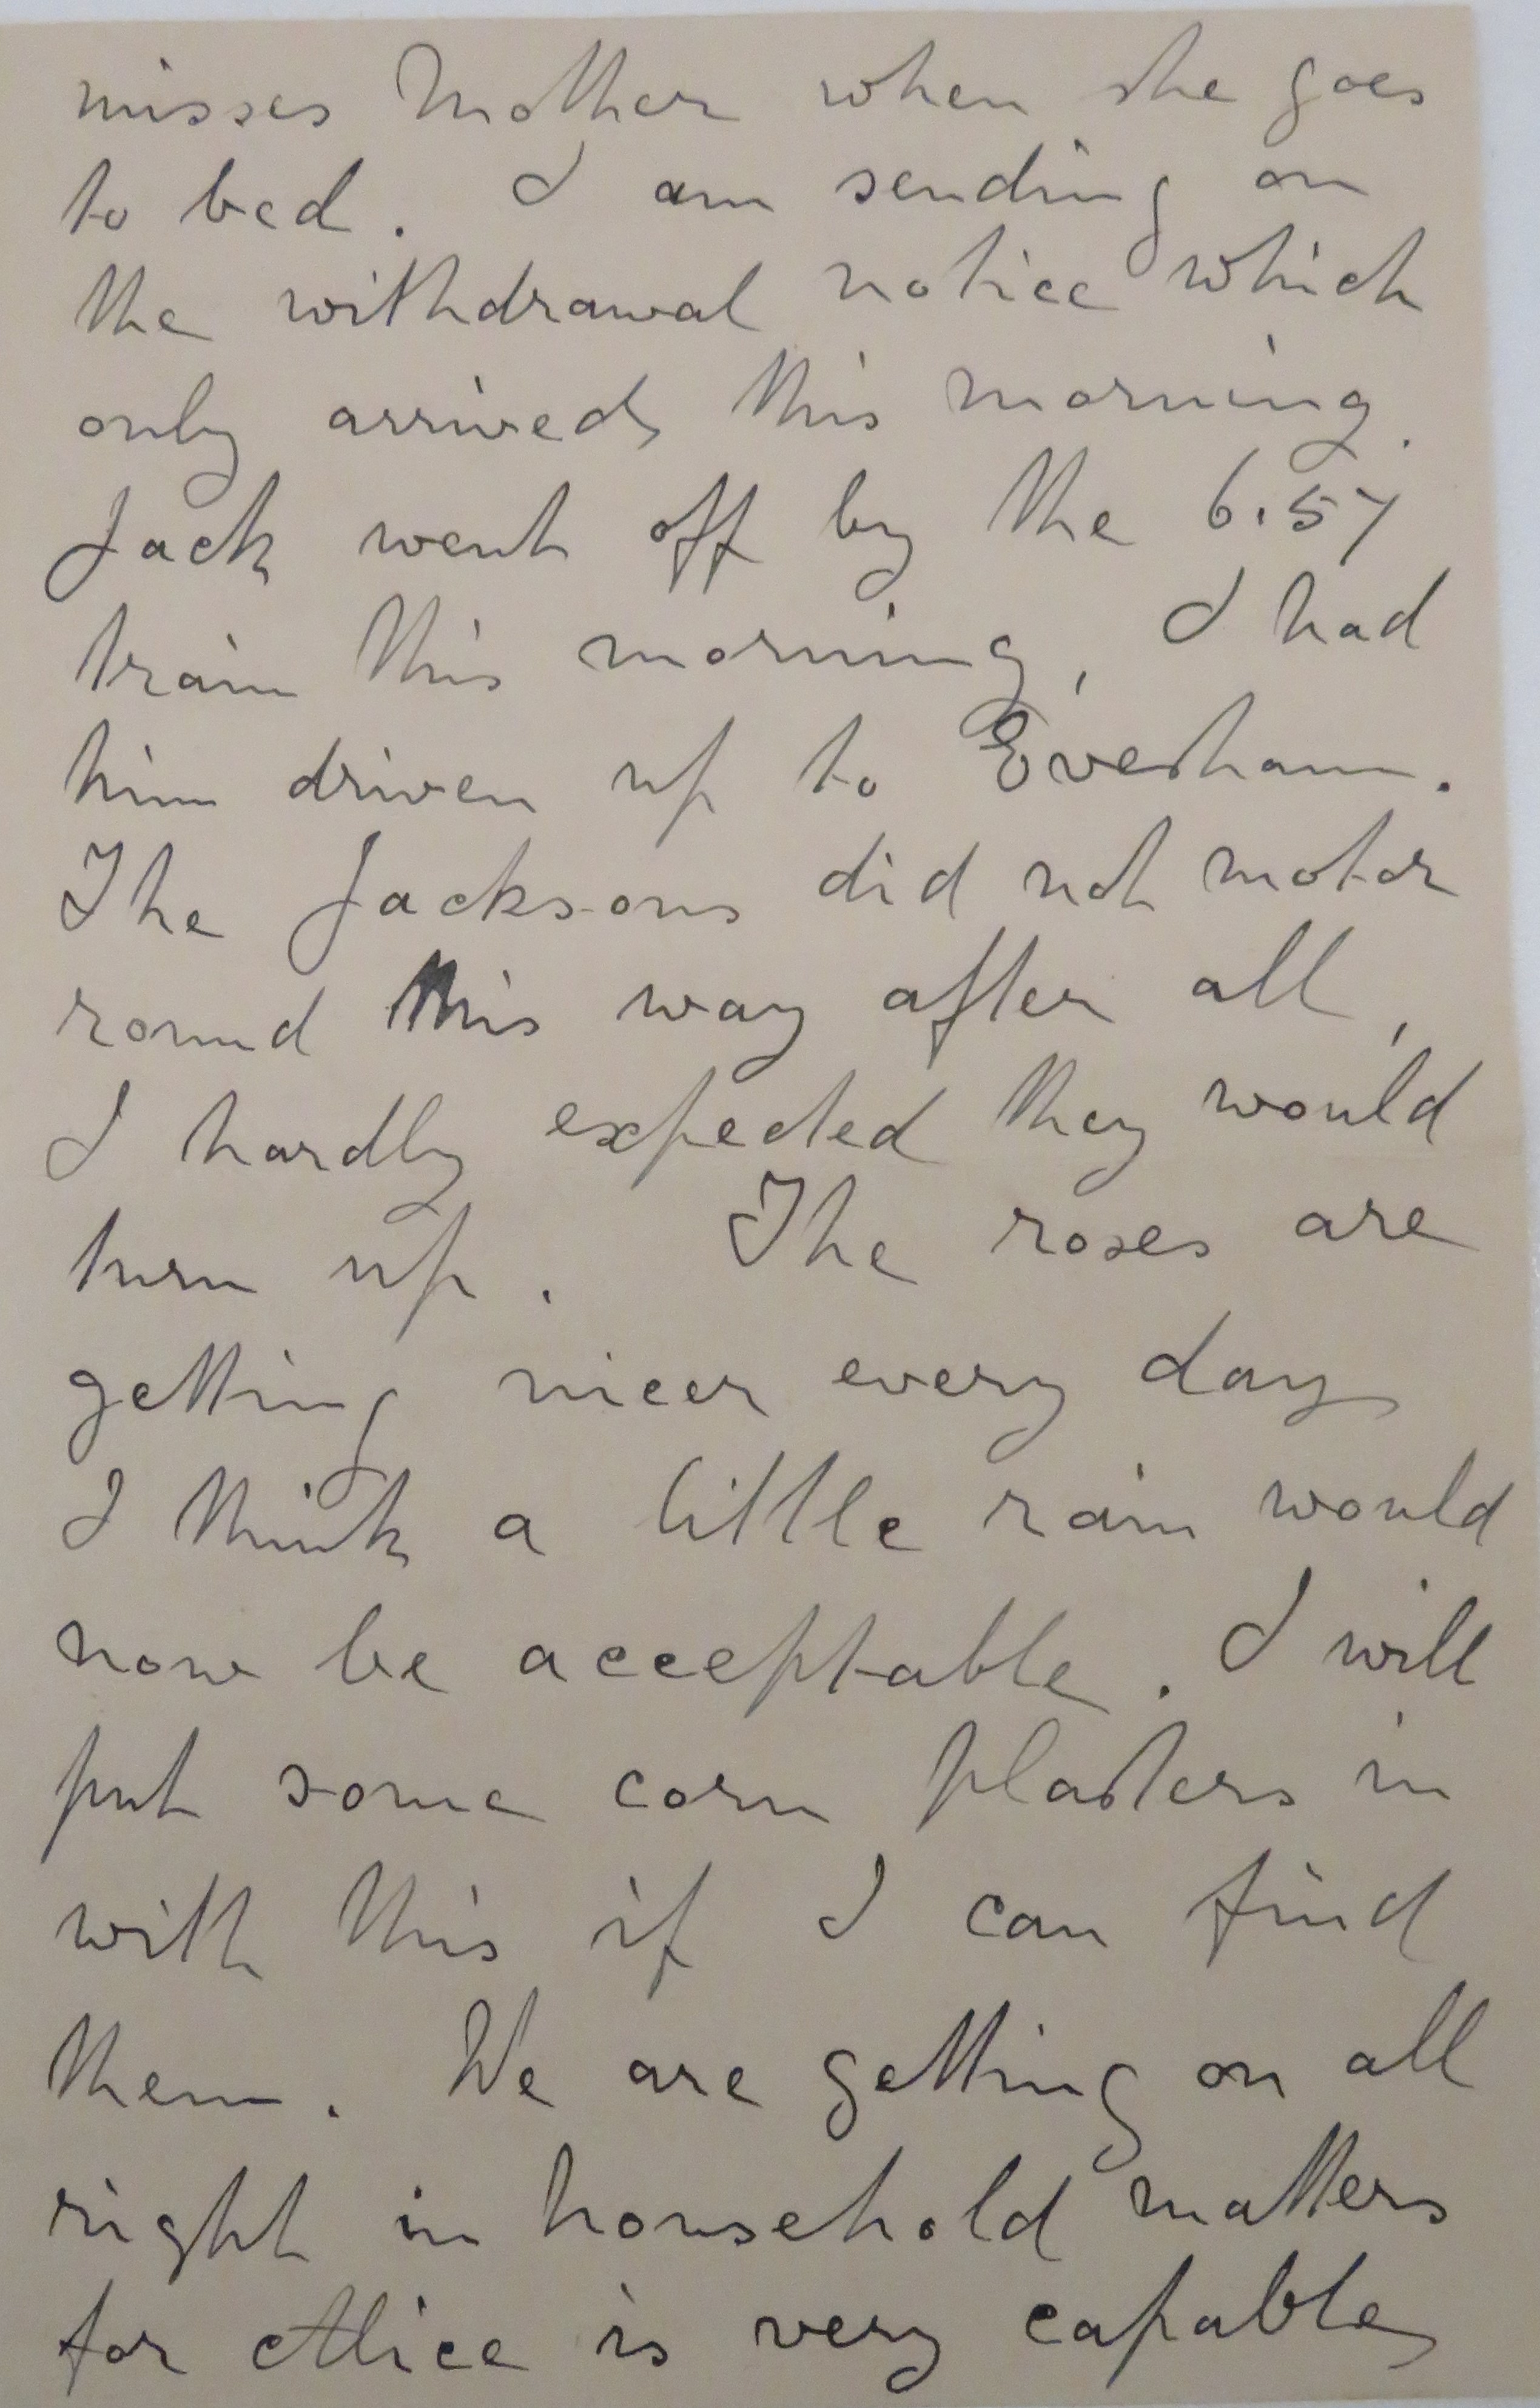 misses Mother when she goes
to bed. I am sending on
the withdrawal notice which
only arrived this morning.
Jack went off by the 6.57
train this morning, I had
him driven up to Evesham.
The Jacksons did not motor
round this way after all,
I hardly expected they would
turn up. The roses are
getting nicer every day
I think a little rain would
now be acceptable. I will
put some corn plasters in
with this if I can find
them. We are getting on all
right in household matters
for Alice is very capable